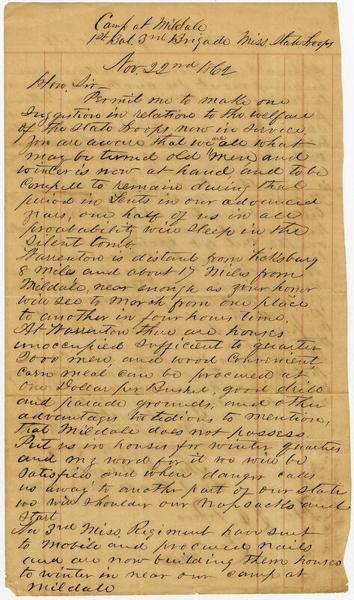 Camp at Mildale
1st Bat. 3rd Brigade Miss State Troops
Nov. 22nd 1862
Hon. Sir
Permit me to make one
Suggestion in relation to the welfare
of the State Troops now in Service,
you are aware that we are all what
may be turmd old men and
winter is now at hand and to be
Compell to remain during that
period in Tents in our advanced
years, one half of us in all
probability will Sleep in the
Silent tomb.
Warrenton is distant from Vicksburg
8 Miles and about 17 Miles from
Mildale, near enough as your honor
will See to March from one place
to another in four hours time.
At Warrenton there are houses
unoccupied Sufficient to quarter
2000 men and wood Convenient,
Corn meal can be procured at
one Dollar per Bushel, good drill
and parade grounds, and other
advantages to tedious to mention,
that Mildale does not possess.
Put us in houses for winter quarters
and my word for it we will be
Satisfied, and when danger calls
us away to another part of our State
we will Shoulder our Napsacks and
Start
3rd Miss. Regiment have Sent
to Mobile and procured nails
and are now building them houses
to winter in near our camp at
Mildale